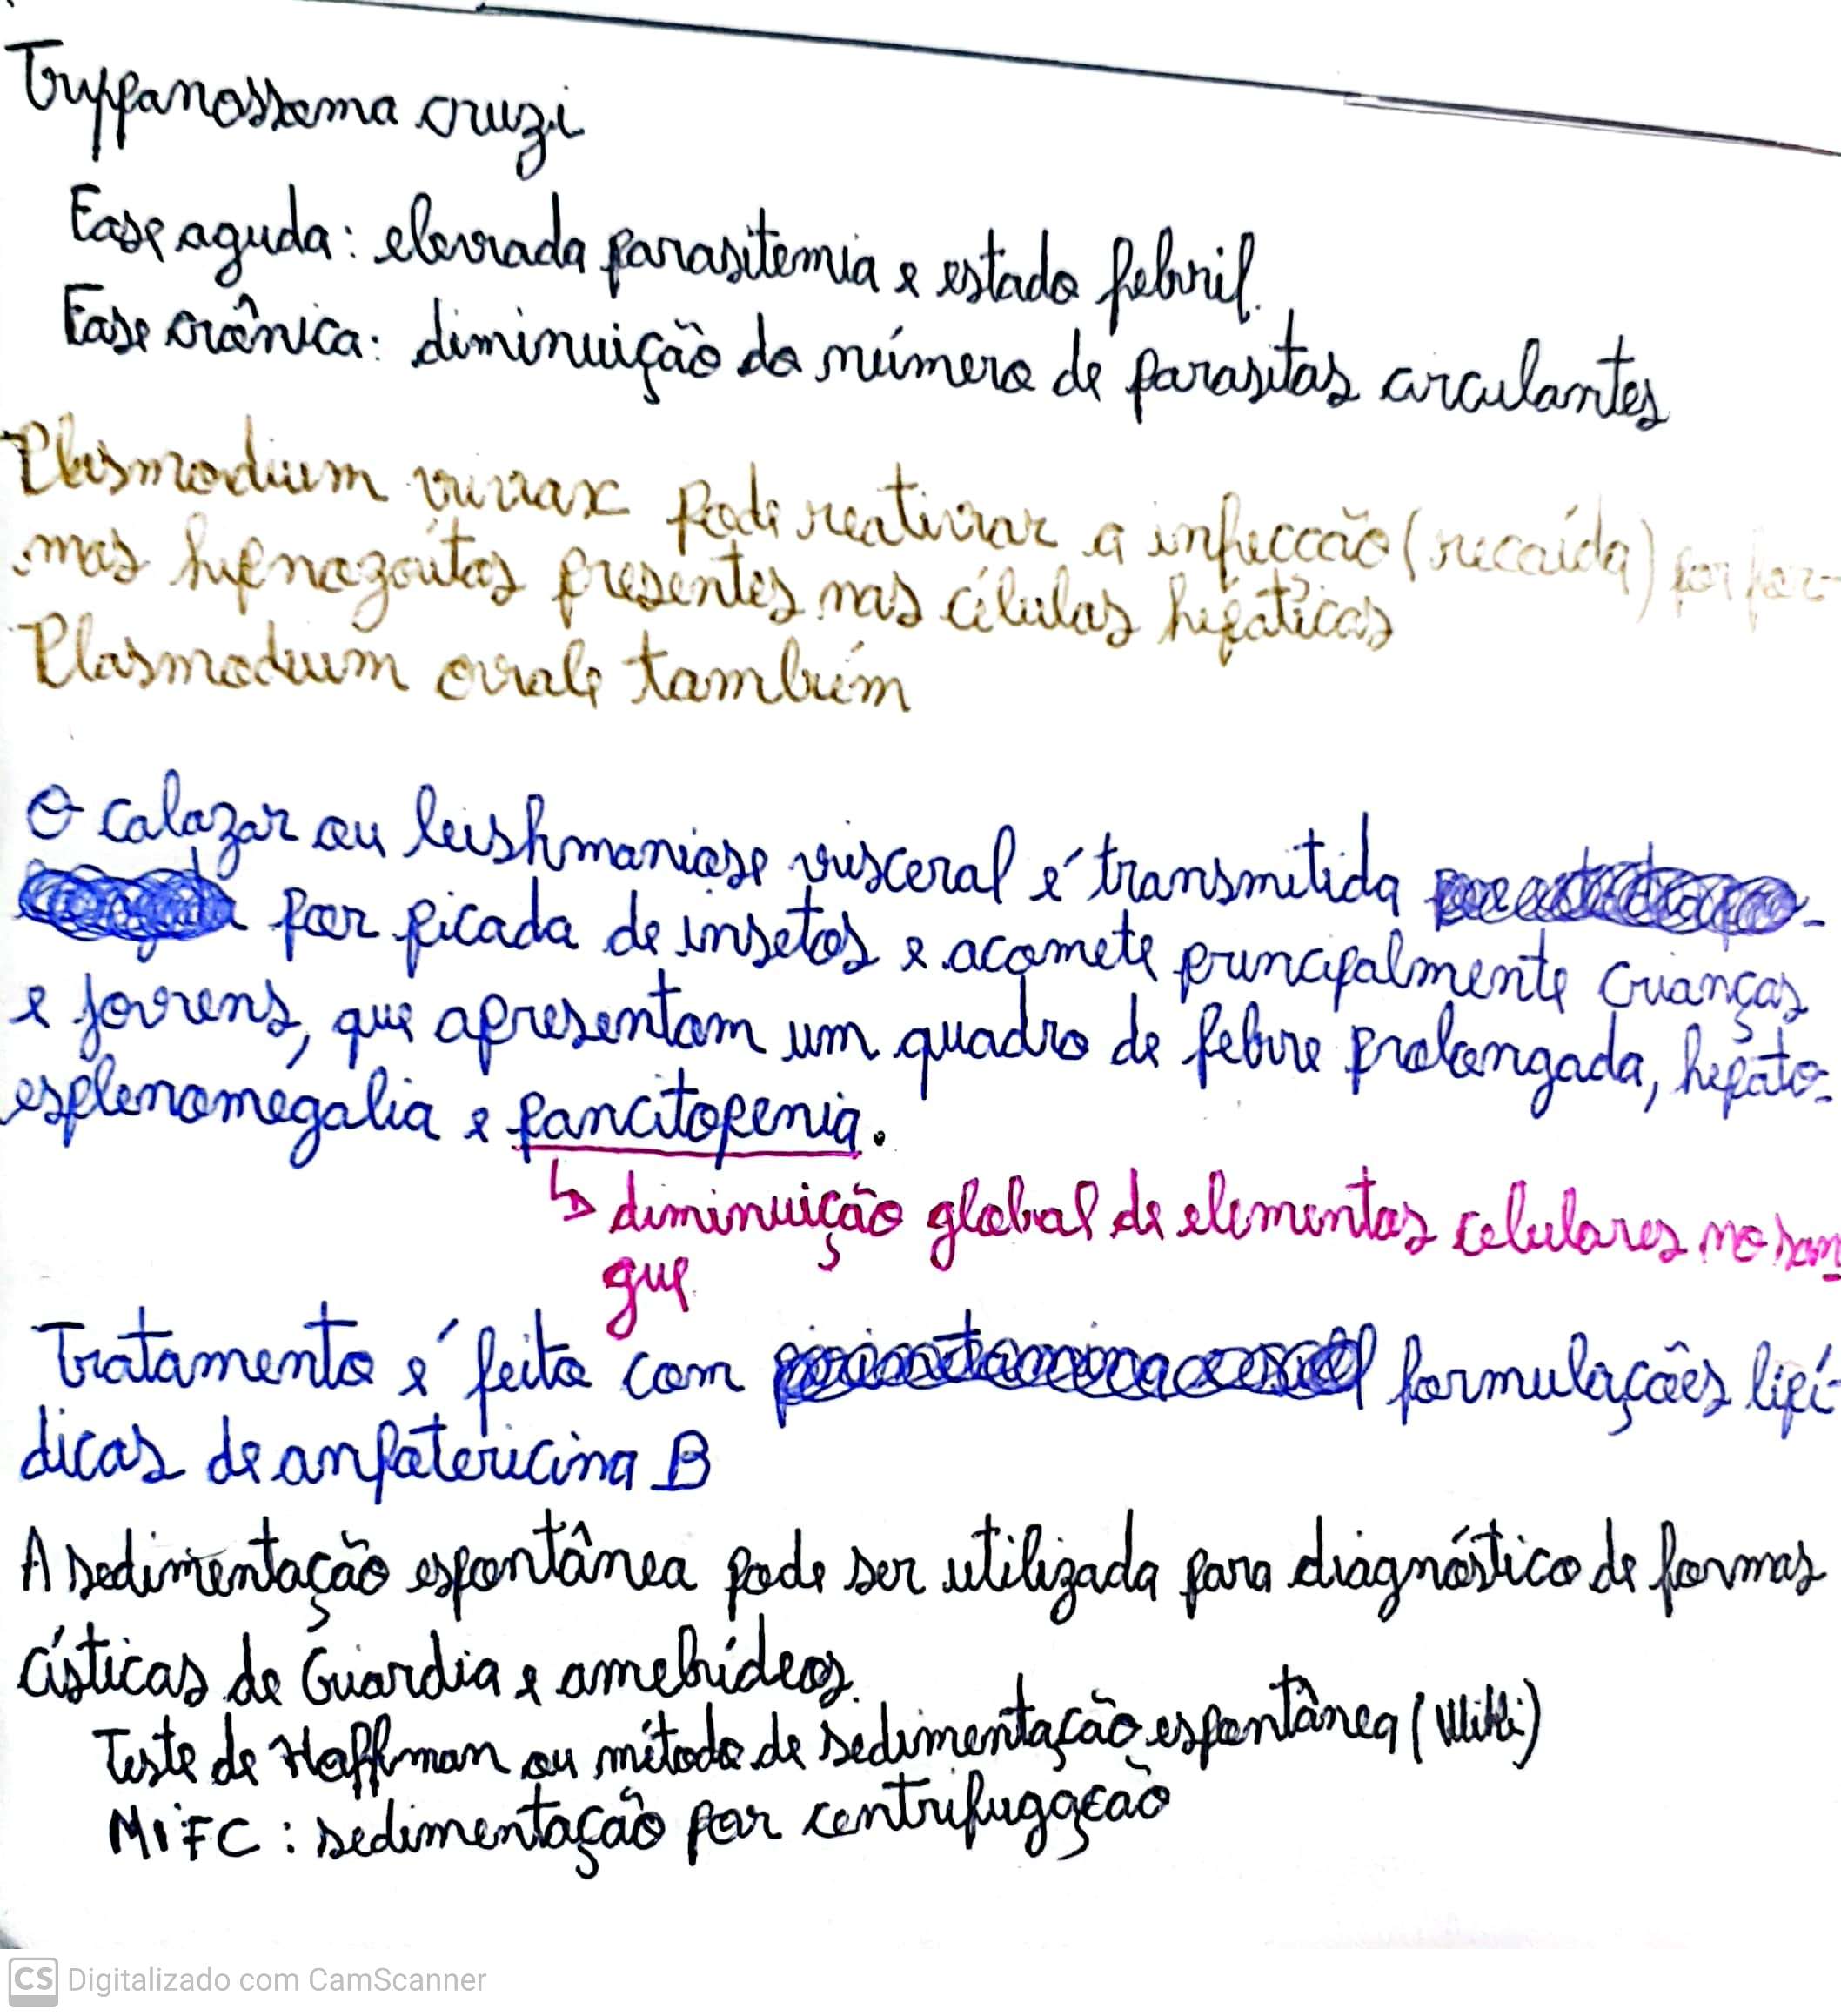 Trypanossoma cruzi
Fase aguda: elevada parasitemia e estado febril.
Fase crônica: diminuição do número de parasitas circulantes
Plasmodium vivax pode reativar a infeccão (recaída) por for-
mas hipnozoítas presentes nas células hepáticas
Plasmodium ovale também
O calazar ou leishmaniose visceral é transmitida
por picada de insetos e acomete principalmente crianças
e jovens, que apresentam um quadro de febre prolongada, hepato-
esplenomegalia e pancitopenia.
↳ diminuição global de elementos celulares no san-
gue
Tratamento é feito com formulações lipí-
dicas de anfotericina B
A sedimentação espontânea pode ser utilizada para diagnóstico de formas
císticas de Giardia e amebídeos.
Teste de Hoffman ou método de sedimentação espontânea (Wiki)
MiFC: sedimentação por centrifugação
CS Digitalizado com CamScanner